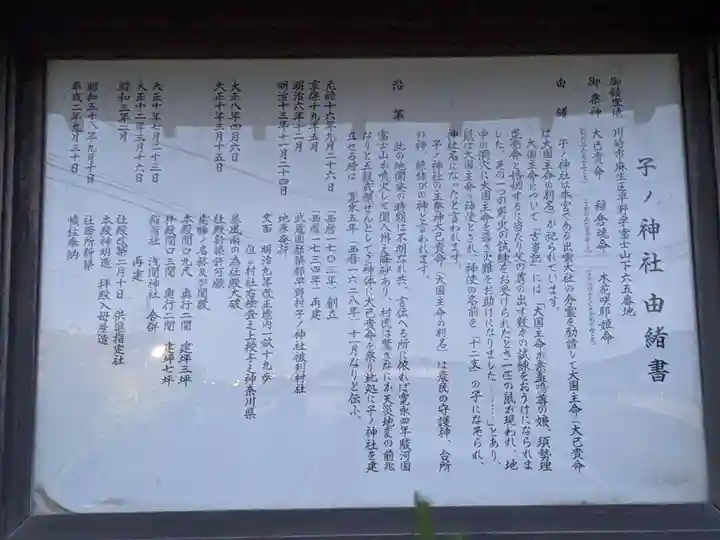 子ノ神社由緒書
御鎮座地 川崎市麻生区早野字富士山下六五番地
御祭神 大己貴命 稲倉魂命 木花咲耶姫命
由緒
子ノ神社は本宮である出雲大社の分霊を勧請して大国主命（大己貴命
は大国主命の別名）が祀られています。
大国主命について「古事記」には「大国主命が素戔嗚尊の娘、須勢理
毘売命と結婚するに当たり父の尊の出す数々の試練をおうけになられま
した。その一つの野火の試練をお受けられたとき一匹の鼠が現われ、地
中の洞穴に大国主命を導き火難をお助けになりました……」とあり、
鼠は大国主命の神使とされ、神使の名前を（十二支）の子になぞられ、
神社名になったと言われてます。
子ノ神社の主祭神大己貴命（大国主命の別名）は農民の守護神、台所
の神、縁結びの神と言われます。
沿革
此の地開発の時期は不明なれ共、言伝へる所に依れば寛永四年駿河国
富士山が噴火して関八州に降砂あり、村民は驚きなにか天災地変の前兆
なりと五穀武観せんとしてき神体に大己貴命を祭り此処に子ノ神社を建
立せる繪は、寛永五年（西暦一六二八年）十一月なりと伝ふ。
元禄十六年九月二十六日 （西暦一七〇三年）創立
享保十九年五月 （西暦一七三四年）再建
明治六年十二月 武蔵国都築郡早野村子ノ神社被列村社
明治十三年十一月二十四日 地券発行
表面 明治九年改正境内一畝十九歩
但し村社右検査之上授与之神奈川県
大正八年四月六日 暴風雨の為社殿大破
大正十年三月十五日 社殿新築許可願
建物ノ名称及び間数
本殿間口九尺 奥行二間 建坪三坪
拝殿間口三間 奥行二間 建坪七坪
大正十年十一月二十三日 稲荷社 浅間神社 合併
大正十二年三月十六日 再建
昭和三年二月 社殿改築二月十日 供進指定社
本殿神明造 拝殿入母屋造
昭和五十八年九月十日 社務所新築
平成二年九月三十日 幟柱奉納